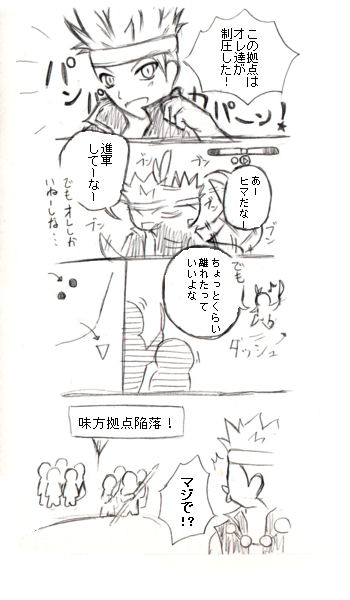 この拠点は
オレ達が
制圧した！
パンパカパーン！
進軍
してーなー
あー
ヒマだなー
ブン
ブン
ブン
ブン
でもオレしか
いねーしな…
でも
ちょっとくらい
離れたって
いいよな
ダッシュ
味方拠点陥落！
マジで!?